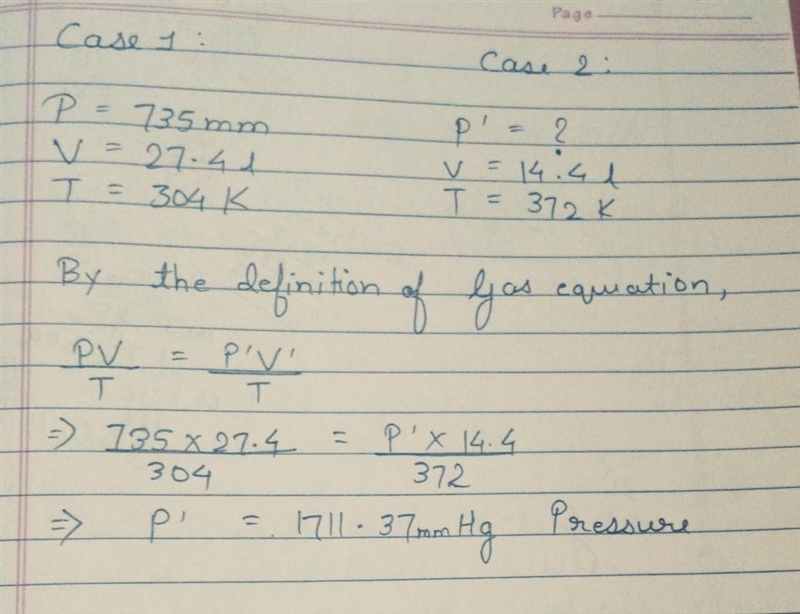 Page
Case 1:
Case 2:
P = 735 mm
V = 27.4 l
T = 304 K
P' = ?
V = 14.4 l
T = 372 K
By the definition of Gas equation,
PV/T = P'V'/T
⇒ 735 × 27.4/304 = P' × 14.4/372
⇒ P' = 1711.37 mm Hg Pressure